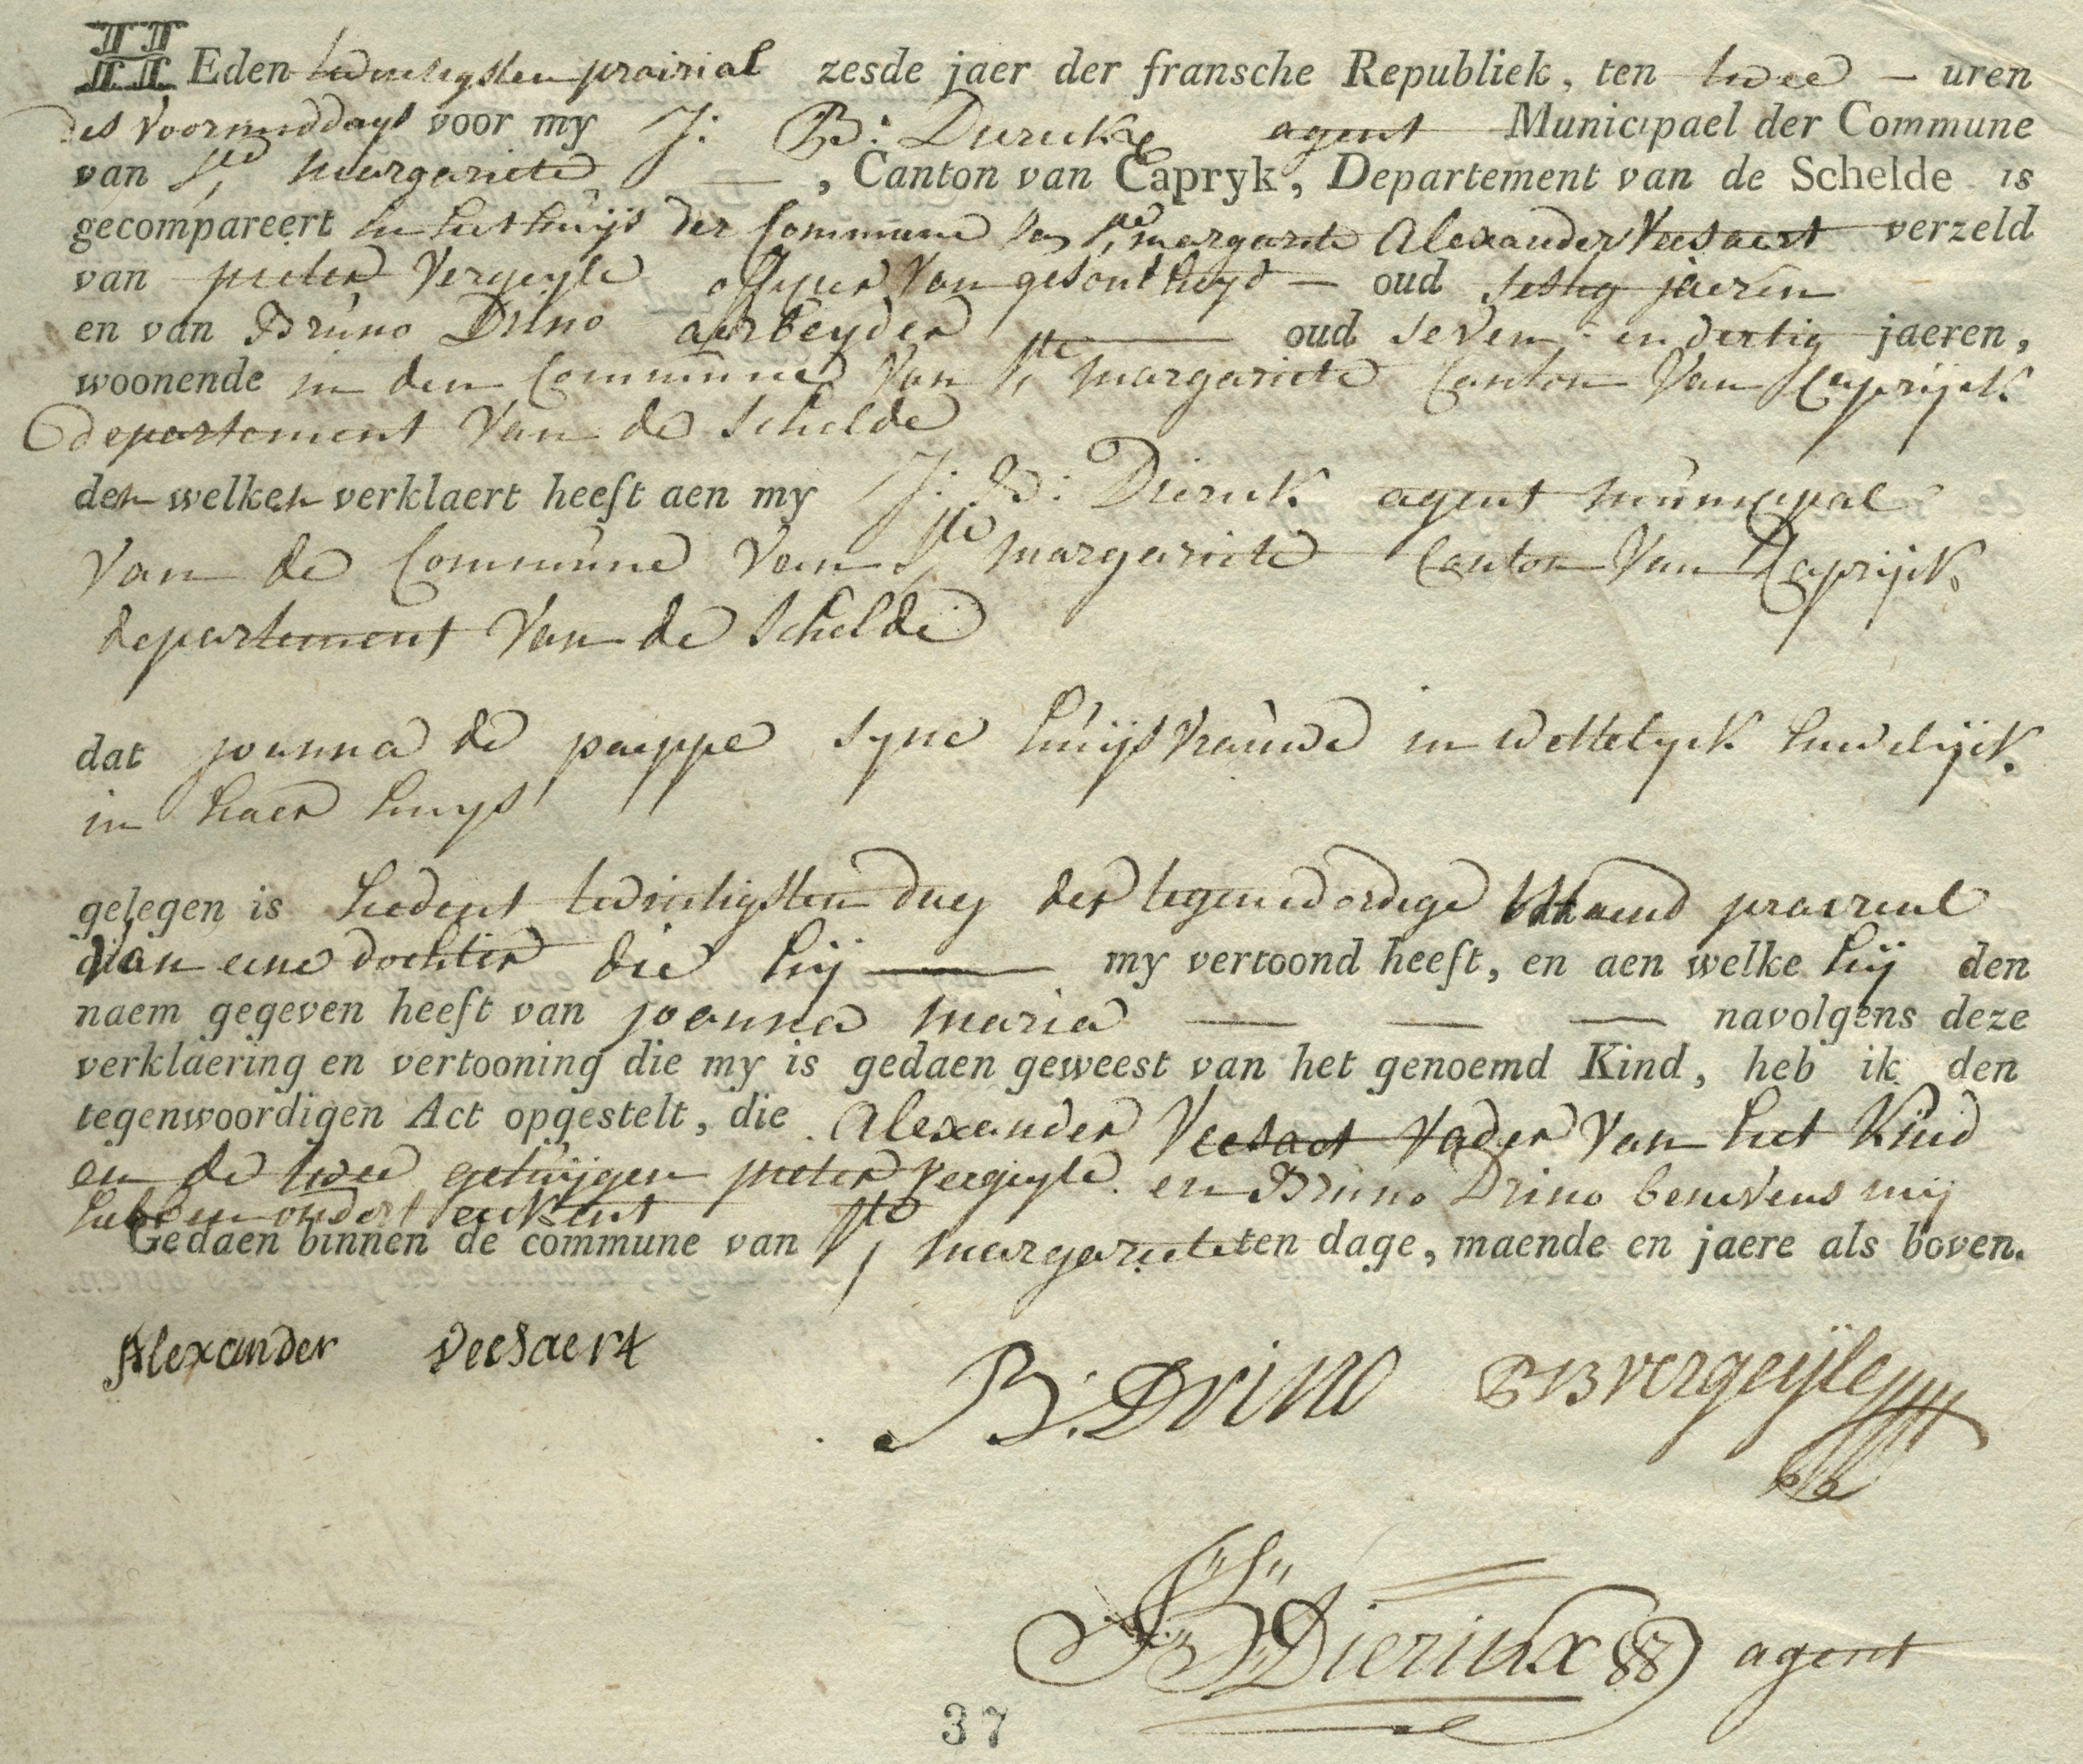 HEden twintigsten prairial zesde jaer der fransche Republiek, ten twee — uren
des voormiddags voor my J: B: Dierickx agent Municipael der Commune
van Ste margariete — , Canton van Capryk, Departement van de Schelde is
gecompareert in het huijs der Commune van Ste margariete Alexander Veesaert verzeld
van pieter Vergeyle officier van gesontheyd — oud sestig jaeren
en van Bruno Drino arbeyder — oud seven en dertig jaeren,
woonende in den Commune van Ste margariete Canton van Caprijck
departement van de Schelde
den welken verklaert heeft aen my J: B: Dierick agent municipal
van de Commune van Ste margariete Canton van Caprijck
departement van de Schelde
dat joanna de paeppe syne huijsvrauwe in wettelyck huwelijck
in haer huys
gelegen is hedent twintigsten dag der tegenwordige Maend praireal
van eene dochter die hij — my vertoond heeft, en aen welke hij den
naem gegeven heeft van joanna maria — — — navolgens deze
verklaering en vertooning die my is gedaen geweest van het genoemd Kind, heb ik den
tegenwoordigen Act opgestelt, die Alexander Veesaet vader van het Kind
en de twee getuijgen pieter vergeyle en Bruno Drino benevens mij
hebben onderteekent
Gedaen binnen de commune van Ste margariete ten dage, maende en jaere als boven.
Alexander veesaert
B: Drino PB vergeijle
JB Dierickx agent
37